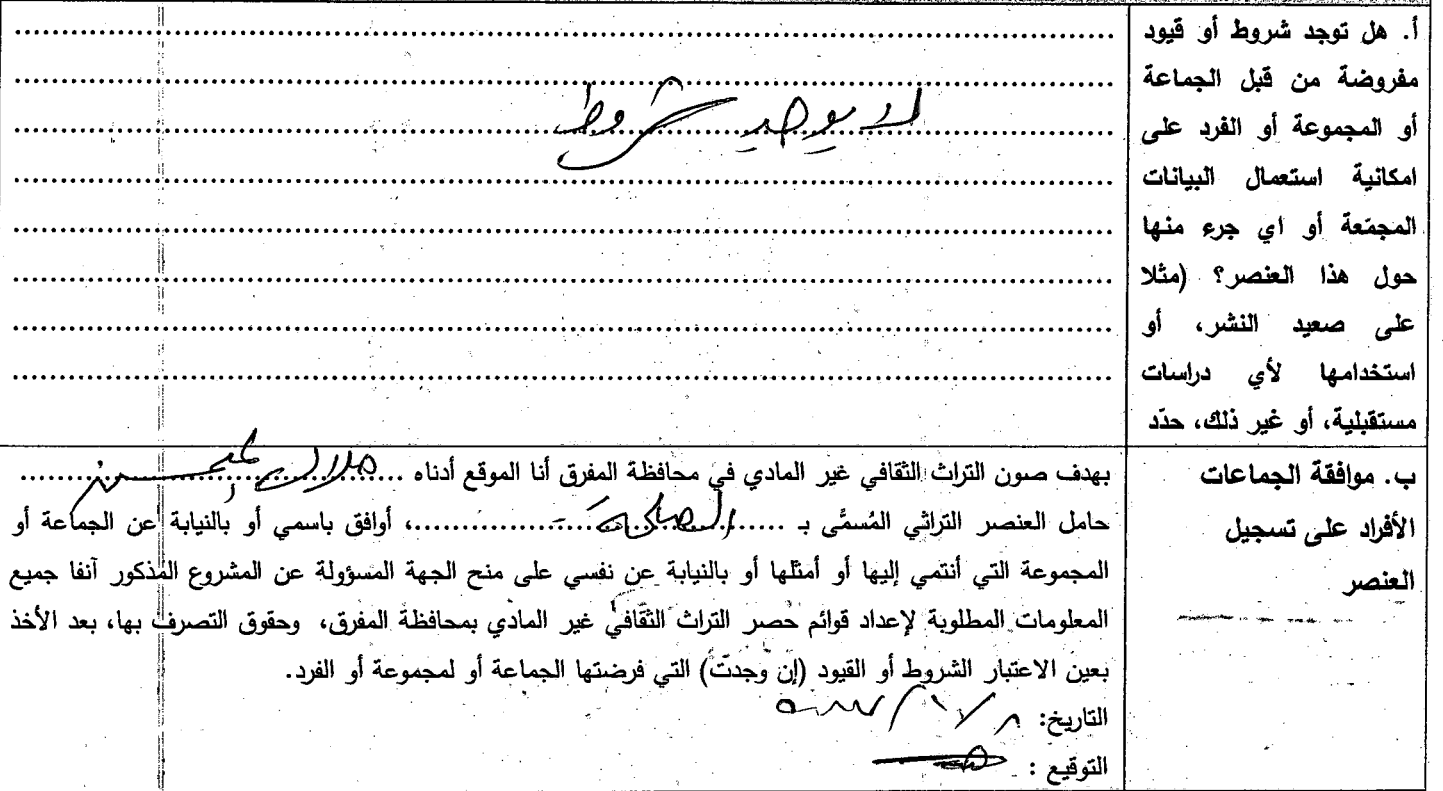 أ. هل توجد شروط أو قيود
مفروضة من قبل الجماعة
أو المجموعة أو الفرد على
امكانية استعمال البيانات
المجمّعة أو اي جرء منها
حول هذا العنصر؟ (مثلا
على صعيد النشر، أو
استخدامها لأي دراسات
مستقبلية، أو غير ذلك، حدّد
لا يوجد شروط
ب. موافقة الجماعات
الأفراد على تسجيل
العنصر
بهدف صون التراث الثقافي غير المادي في محافظة المفرق أنا الموقع أدناه
حامل العنصر التراثي المُسمَّى بـ ، أوافق باسمي أو بالنيابة عن الجماعة أو
المجموعة التي أنتمي إليها أو أمثلها أو بالنيابة عن نفسي على منح الجهة المسؤولة عن المشروع المذكور آنفا جميع
المعلومات المطلوبة لإعداد قوائم حصر التراث الثقافي غير المادي بمحافظة المفرق، وحقوق التصرف بها، بعد الأخذ
بعين الاعتبار الشروط أو القيود (إن وجدت) التي فرضتها الجماعة أو لمجموعة أو الفرد.
التاريخ:
التوقيع :